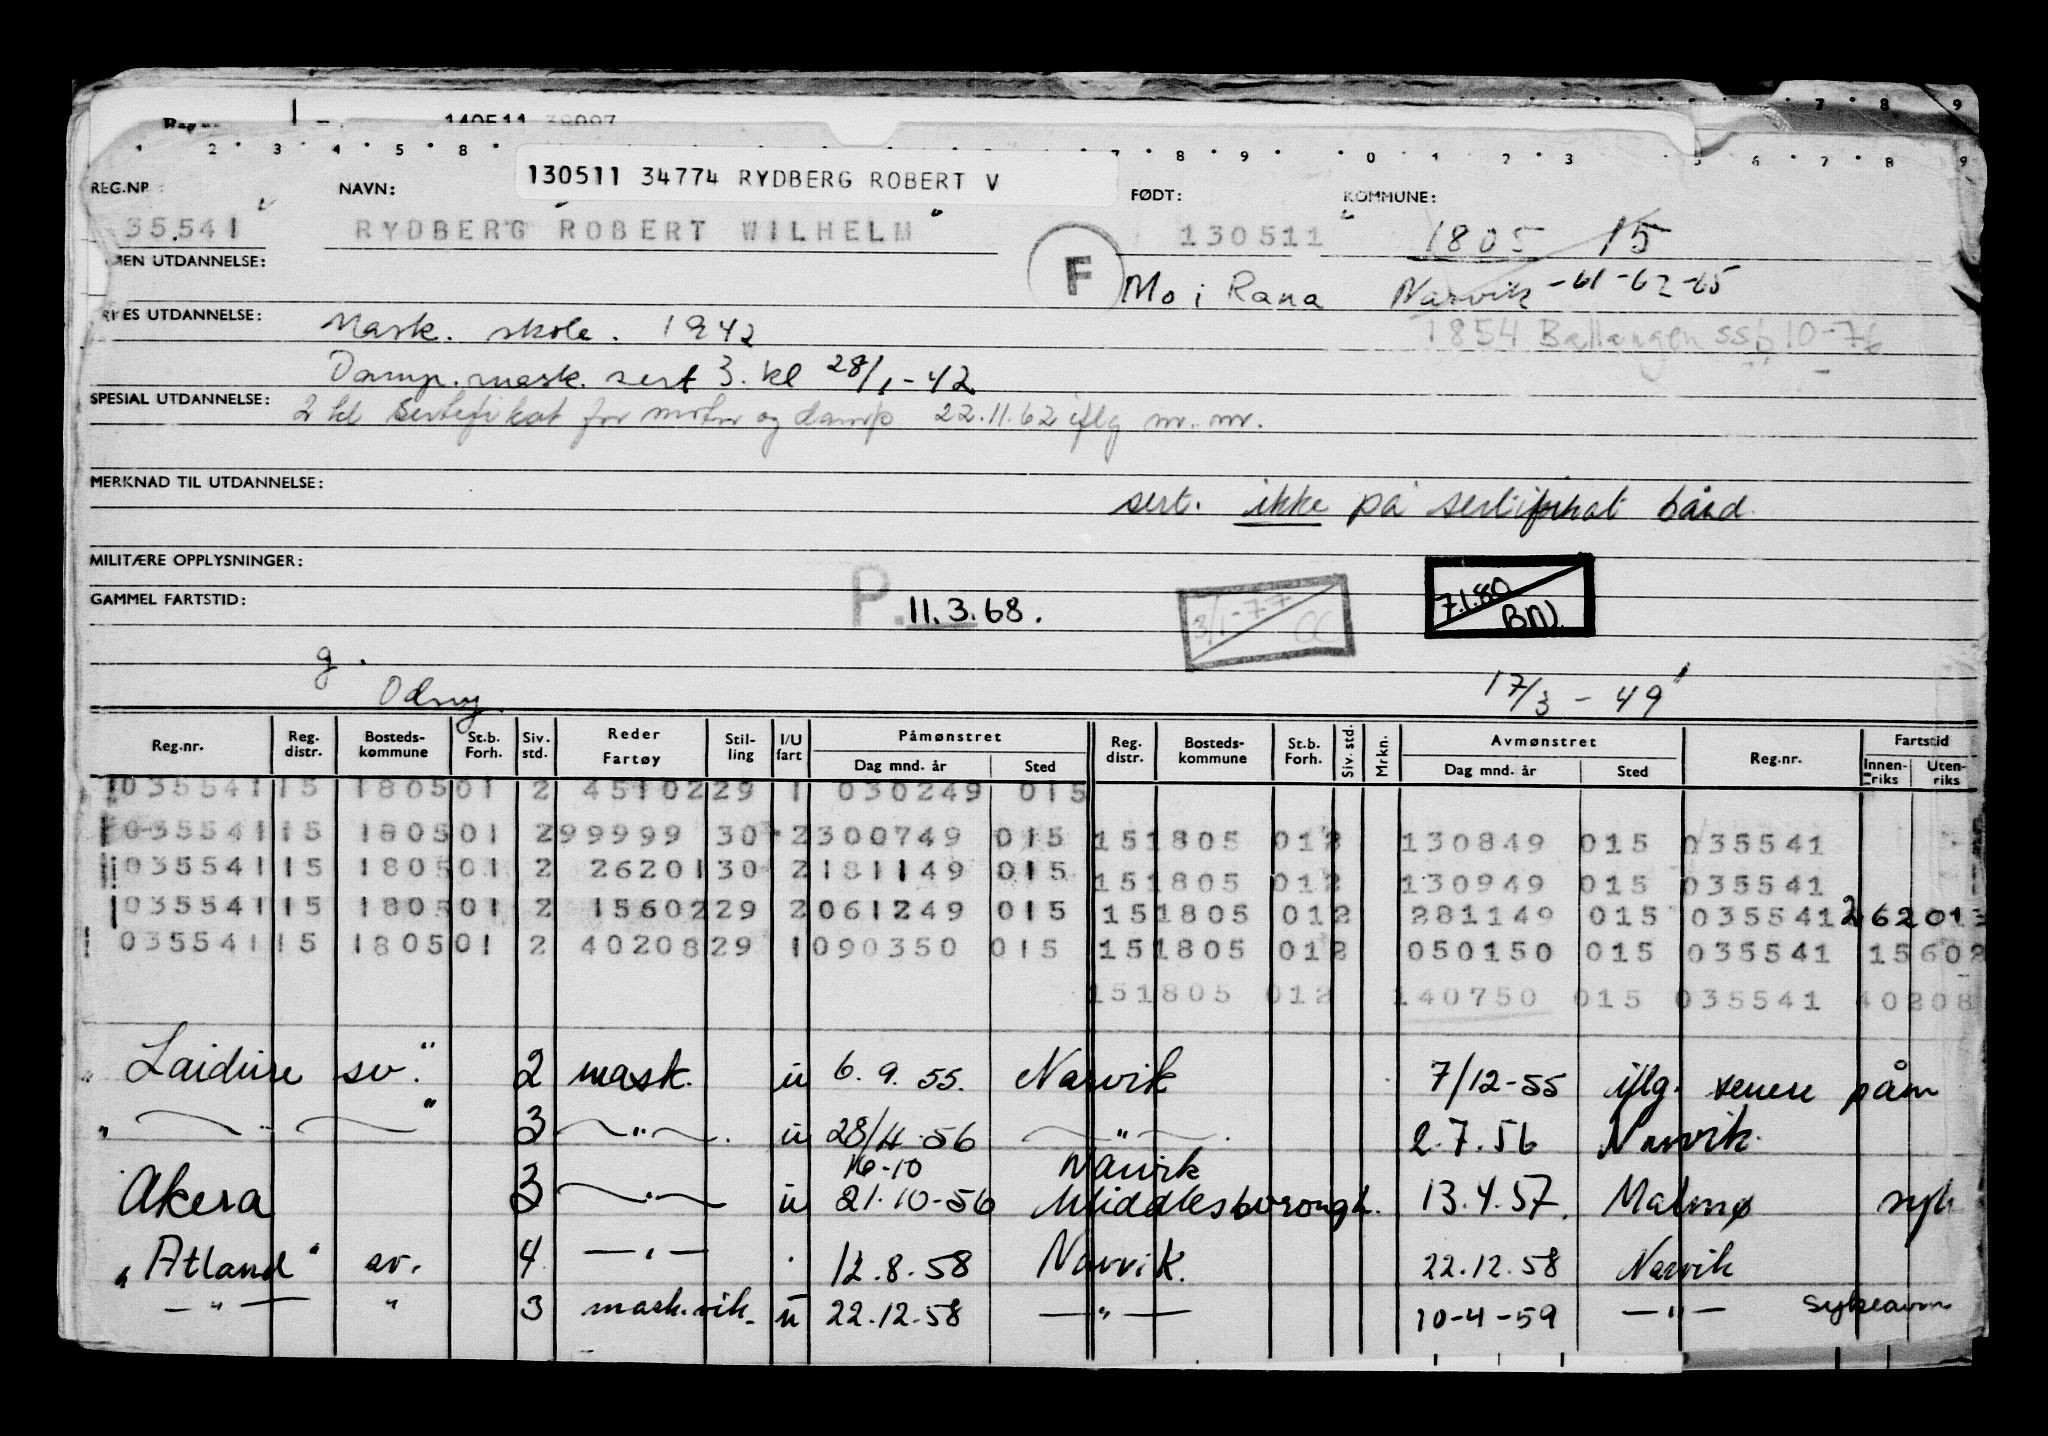 140511
1 2 3 4 5 8 7 8 9 0 1 2 3 5 6 7 8 9
7 8 9
130511 34774 RYDBERG ROBERT V
REG.NR: NAVN: FØDT: KOMMUNE:
35541 RYDBERG ROBERT WILHELM 130511 1805 15
MEN UTDANNELSE: F Mo i Rana Narvik -61-62-65
UTDANNELSE: Mask. skole. 1942 1854 Ballangen ssb 10-76
Damp.mask. sert 3. kl 28/1-42
SPESIAL UTDANNELSE: 2 kl sertifikat for motor og damp 22.11.62 iflg m. m.
MERKNAD TIL UTDANNELSE: sert. ikke på sertifikat bånd.
MILITÆRE OPPLYSNINGER:
GAMMEL FARTSTID: P. 11.3.68. 3/1-77 CC 7.1.80 BN.
g.
Odny. 17/3 - 49
Reg.nr. Reg. distr. Bosteds-kommune St.b. Forh. Siv. std. Reder Fartøy Stil-ling I/U fart Påmønstret Dag mnd. år Sted Reg. distr. Bosteds-kommune St.b. Forh. Siv. std. Mrkn. Avmønstret Dag mnd. år Sted Reg.nr. Fartstid Innen-riks Uten-riks
035541 15 1805 01 2 45102 29 1 030249 015
035541 15 1805 01 2 99999 30 2 300749 015 15 1805 01 2 130849 015 035541
035541 15 1805 01 2 26201 30 2 181149 015 15 1805 01 2 130949 015 035541
035541 15 1805 01 2 15602 29 2 061249 015 15 1805 01 2 281149 015 035541 26201
035541 15 1805 01 2 40208 29 1 090350 015 15 1805 01 2 050150 015 035541 15602
15 1805 01 2 140750 015 035541 40208
sv." 2 mask. u 6.9.55. Narvik 7/12-55 iflg. senere påm
" — " 3 —"—. u 28/4-56 —"—. 2.7.56 Narvik.
16-10 Narvik
Akera 3 —"— u 21.10-56 Middlesborough. 13.4.57. Malmø syk
"Atland" sv. 4 —"— 12.8.58 Narvik. 22.12.58 Narvik
—"— " 3 mask.vik. u 22.12.58 —"— 10-4-59 —"— sykeavm